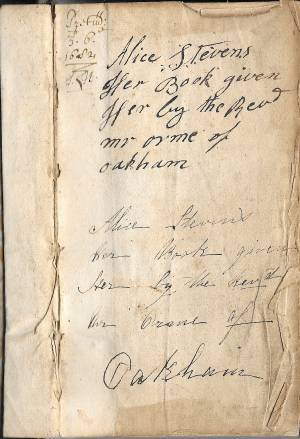 Pretiū.
5. 6d
1682.
Alice Stevens
Her Book given
Her by the Revd
mr orme of
oakham
Alice Stevens
her Book given
Her by the Revd
mr Orme of
Oakham